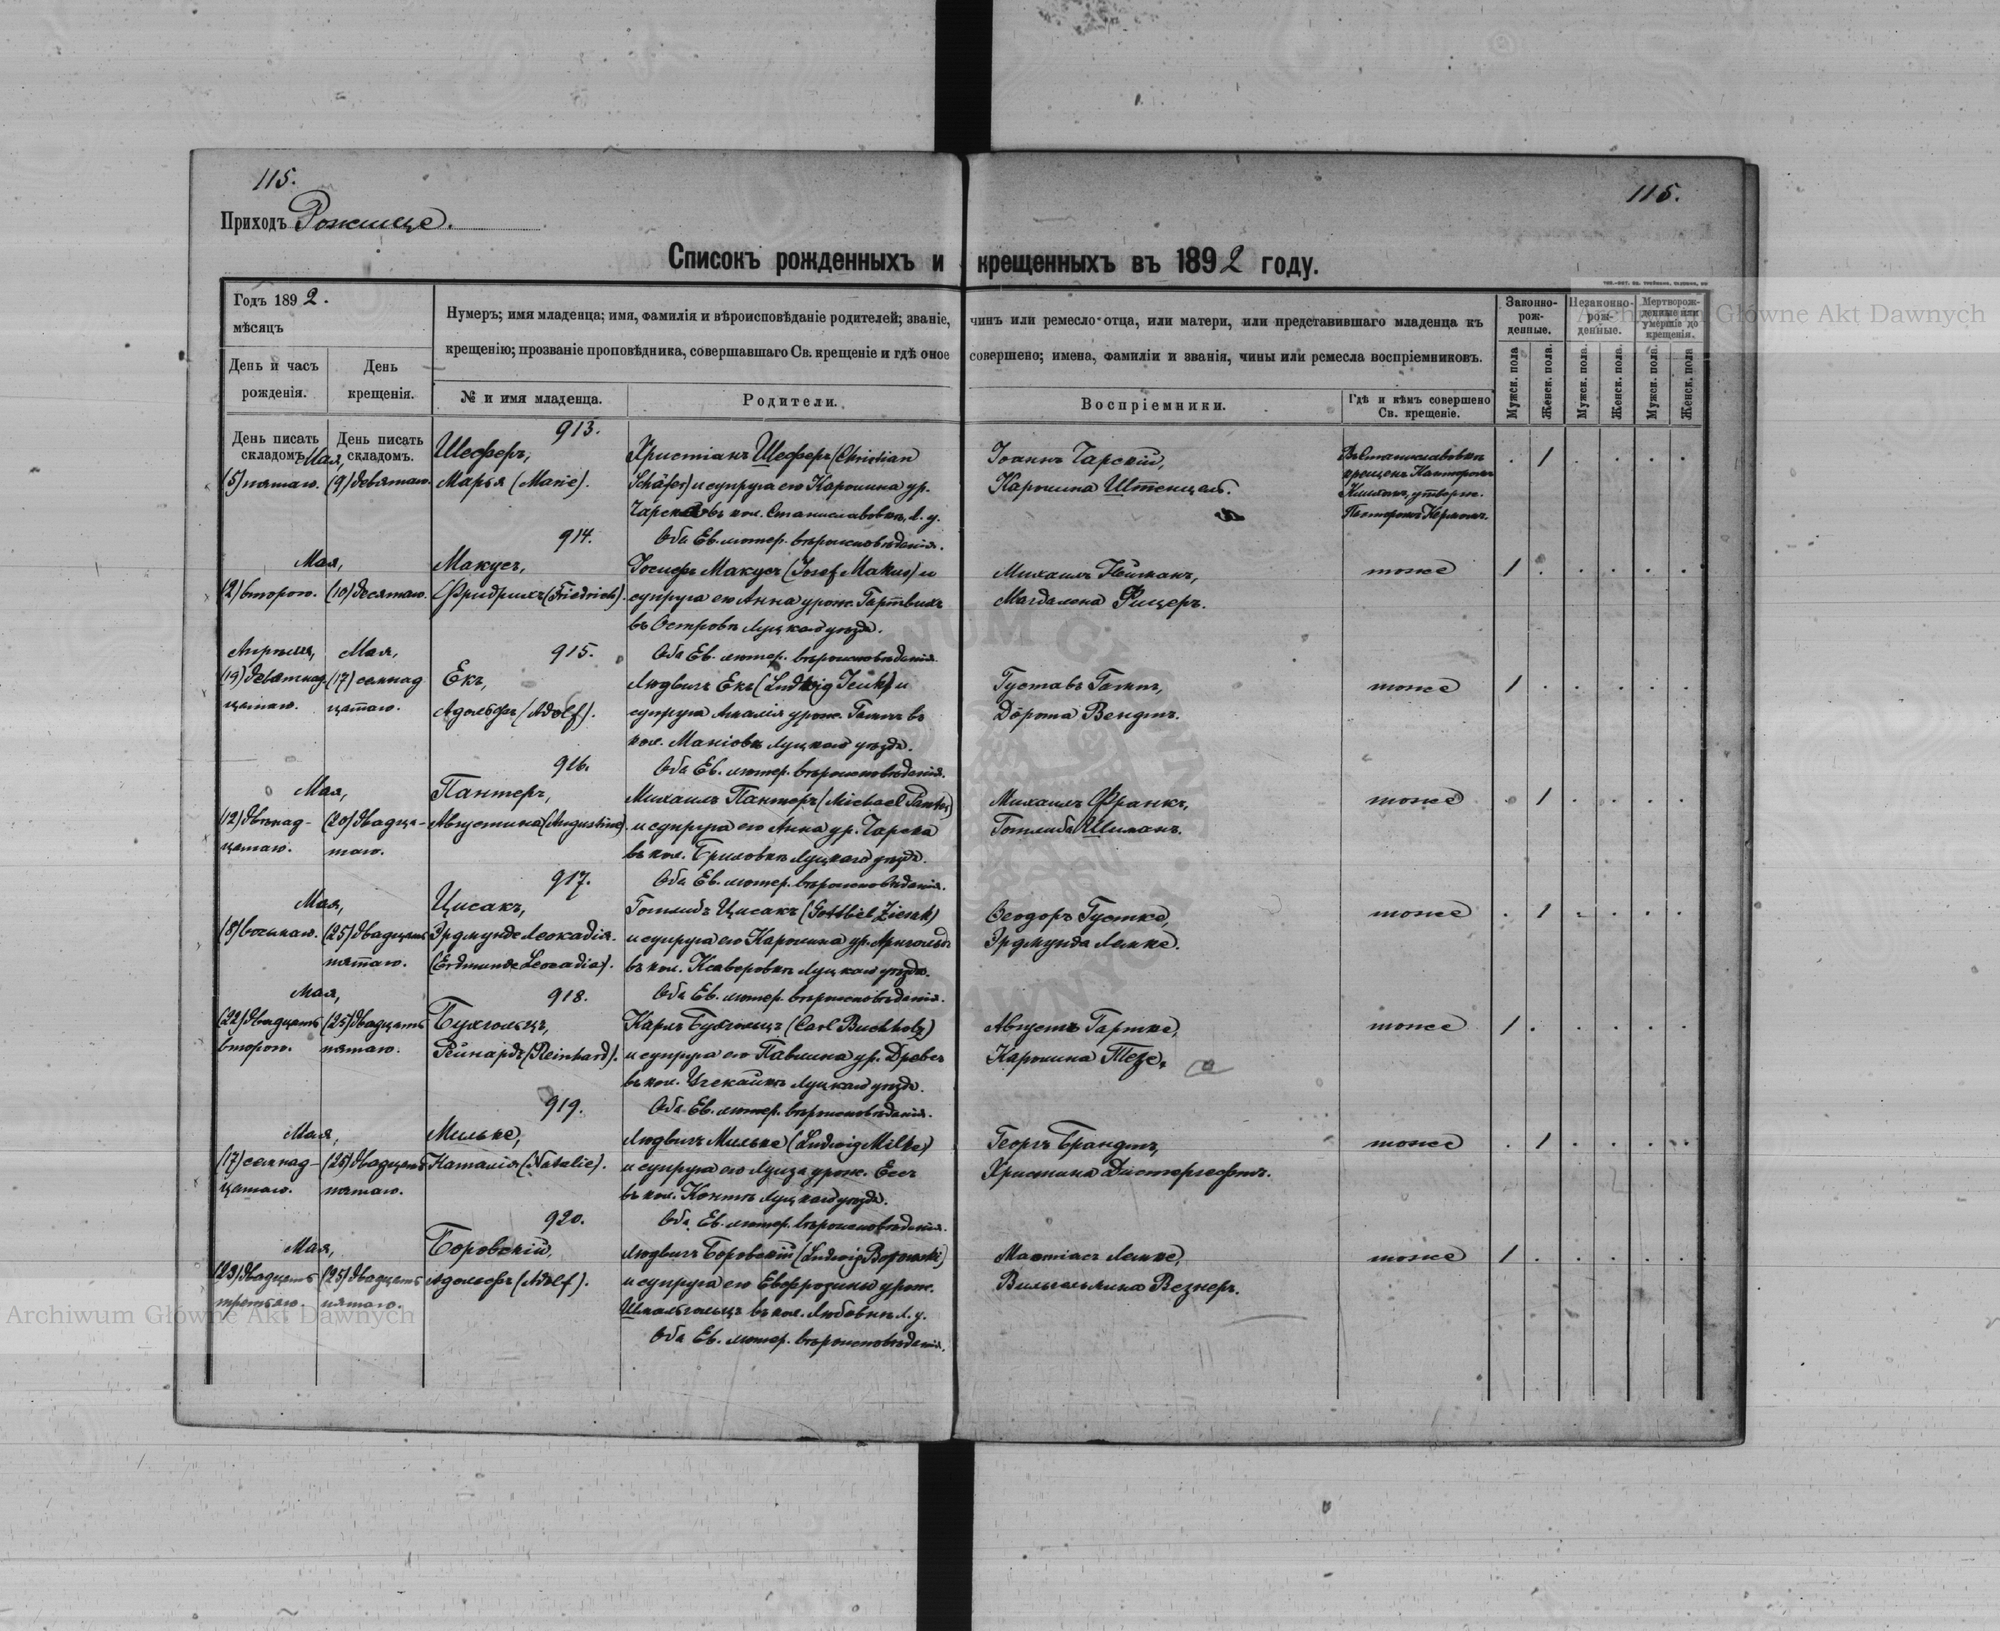 115.
115.
Приходъ Рожище.
Списокъ рожденныхъ и крещенныхъ въ 1892 году.
Годъ 1892.
мѣсяцъ
День и часъ рожденія.
День крещенія.
Нумеръ; имя младенца; имя, фамилія и вѣроисповѣданіе родителей; званіе, чинъ или ремесло отца, или матери, или представившаго младенца къ
крещенію; прозваніе проповѣдника, совершавшаго Св. крещеніе и гдѣ оное совершено; имена, фамиліи и званія, чины или ремесла воспріемниковъ.
№ и имя младенца.
Родители.
Воспріемники.
Гдѣ и кѣмъ совершено Св. крещеніе.
Законно-рож-денные.
Незаконно-рож-денные.
Мертворож-денные или умершіе до крещенія.
Мужск. пола
Женск. пола.
Мужск. пола.
Женск. пола.
Мужск. пола.
Женск. пола
День писать складомъ.
День писать складомъ.
913.
Мая,
(5) пятаго. (9) девятаго.
Шеферъ,
Марья (Marie).
Христіанъ Шеферъ (Christian
Schäfer) и супруга его Каролина ур.
въ кол. Станиславовкѣ, Л. у.
Оба Ев. лютер. вѣроисповѣданія.
Іоаннъ Чарскій,
Каролина Штенцель.
Въ Станиславовкѣ
крещенъ Канторомъ
утверж.
Пасторомъ
1
914.
Мая,
(2) второго. (10) десятаго.
Макусъ,
Фридрихъ (Friedrich).
Іосифъ Макусъ (Josef Makus) и
супруга его Анна урож. Гартвихъ
въ Островѣ Луцкаго уѣзда.
Оба Ев. лютер. вѣроисповѣданія.
Михаилъ Нейманъ,
Магдалена Фишеръ.
тоже
1
915.
Апрѣля, Мая,
(19) девятнад- (17) семнад-
цатаго. цатаго.
Екъ,
Адольфъ (Adolf).
Людвигъ Екъ (Ludwig Jeck) и
супруга Амалія урож. въ
кол. Маніовѣ Луцкаго уѣзда.
Оба Ев. лютер. вѣроисповѣданія.
Густавъ
Дорота Вендтъ.
тоже
1
916.
Мая,
(12) двѣнад- (20) двадца-
цатаго. таго.
Пантеръ,
Августина (Augustine).
Михаилъ Пантеръ (Michael Panter)
и супруга его Анна ур. Чарска
въ кол. Луцкаго уѣзда.
Оба Ев. лютер. вѣроисповѣданія.
Михаилъ Франкъ,
Готлиба Шиманъ.
тоже
1
917.
Мая,
(8) восьмаго. (25) двадцать
пятаго.
Цисакъ,
Эрдмунде Леокадія.
(Erdmunde Leocadia).
Готлибъ Цисакъ (Gottlieb Ziesak)
и супруга его Каролина ур.
въ кол. Ксаверовкѣ Луцкаго уѣзда.
Оба Ев. лютер. вѣроисповѣданія.
Ѳеодоръ Густке,
Эрдмунда Лемке.
тоже
1
918.
Мая,
(22) двадцать (25) двадцать
второго. пятаго.
Бухгольцъ,
Рейнардъ (Reinhard).
Карлъ Бухгольцъ (Carl Buchholz)
и супруга его Павлина ур. Древсъ
въ кол. Луцкаго уѣзда.
Оба Ев. лютер. вѣроисповѣданія.
Августъ Гартке,
Каролина Тезе.
тоже
1
919.
Мая,
(17) семнад- (25) двадцать
цатаго. пятаго.
Мильке,
Наталія (Natalie).
Людвигъ Мильке (Ludwig Milke)
и супруга его Луиза урож. Ессъ
въ кол. Луцкаго уѣзда.
Оба Ев. лютер. вѣроисповѣданія.
Георгъ Брандтъ,
Христина Дистергефтъ.
тоже
1
920.
Мая,
(23) двадцать (25) двадцать
третьяго. пятаго.
Боровскій,
Адольфъ (Adolf).
Людвигъ Боровскій (Ludwig Borowski)
и супруга его Евфрозина урож.
въ кол. Любовкѣ Л. у.
Оба Ев. лютер. вѣроисповѣданія.
Матіасъ Лемке,
Вильгельмина Везнеръ.
тоже
1
Archiwum Główne Akt Dawnych
Archiwum Główne Akt Dawnych